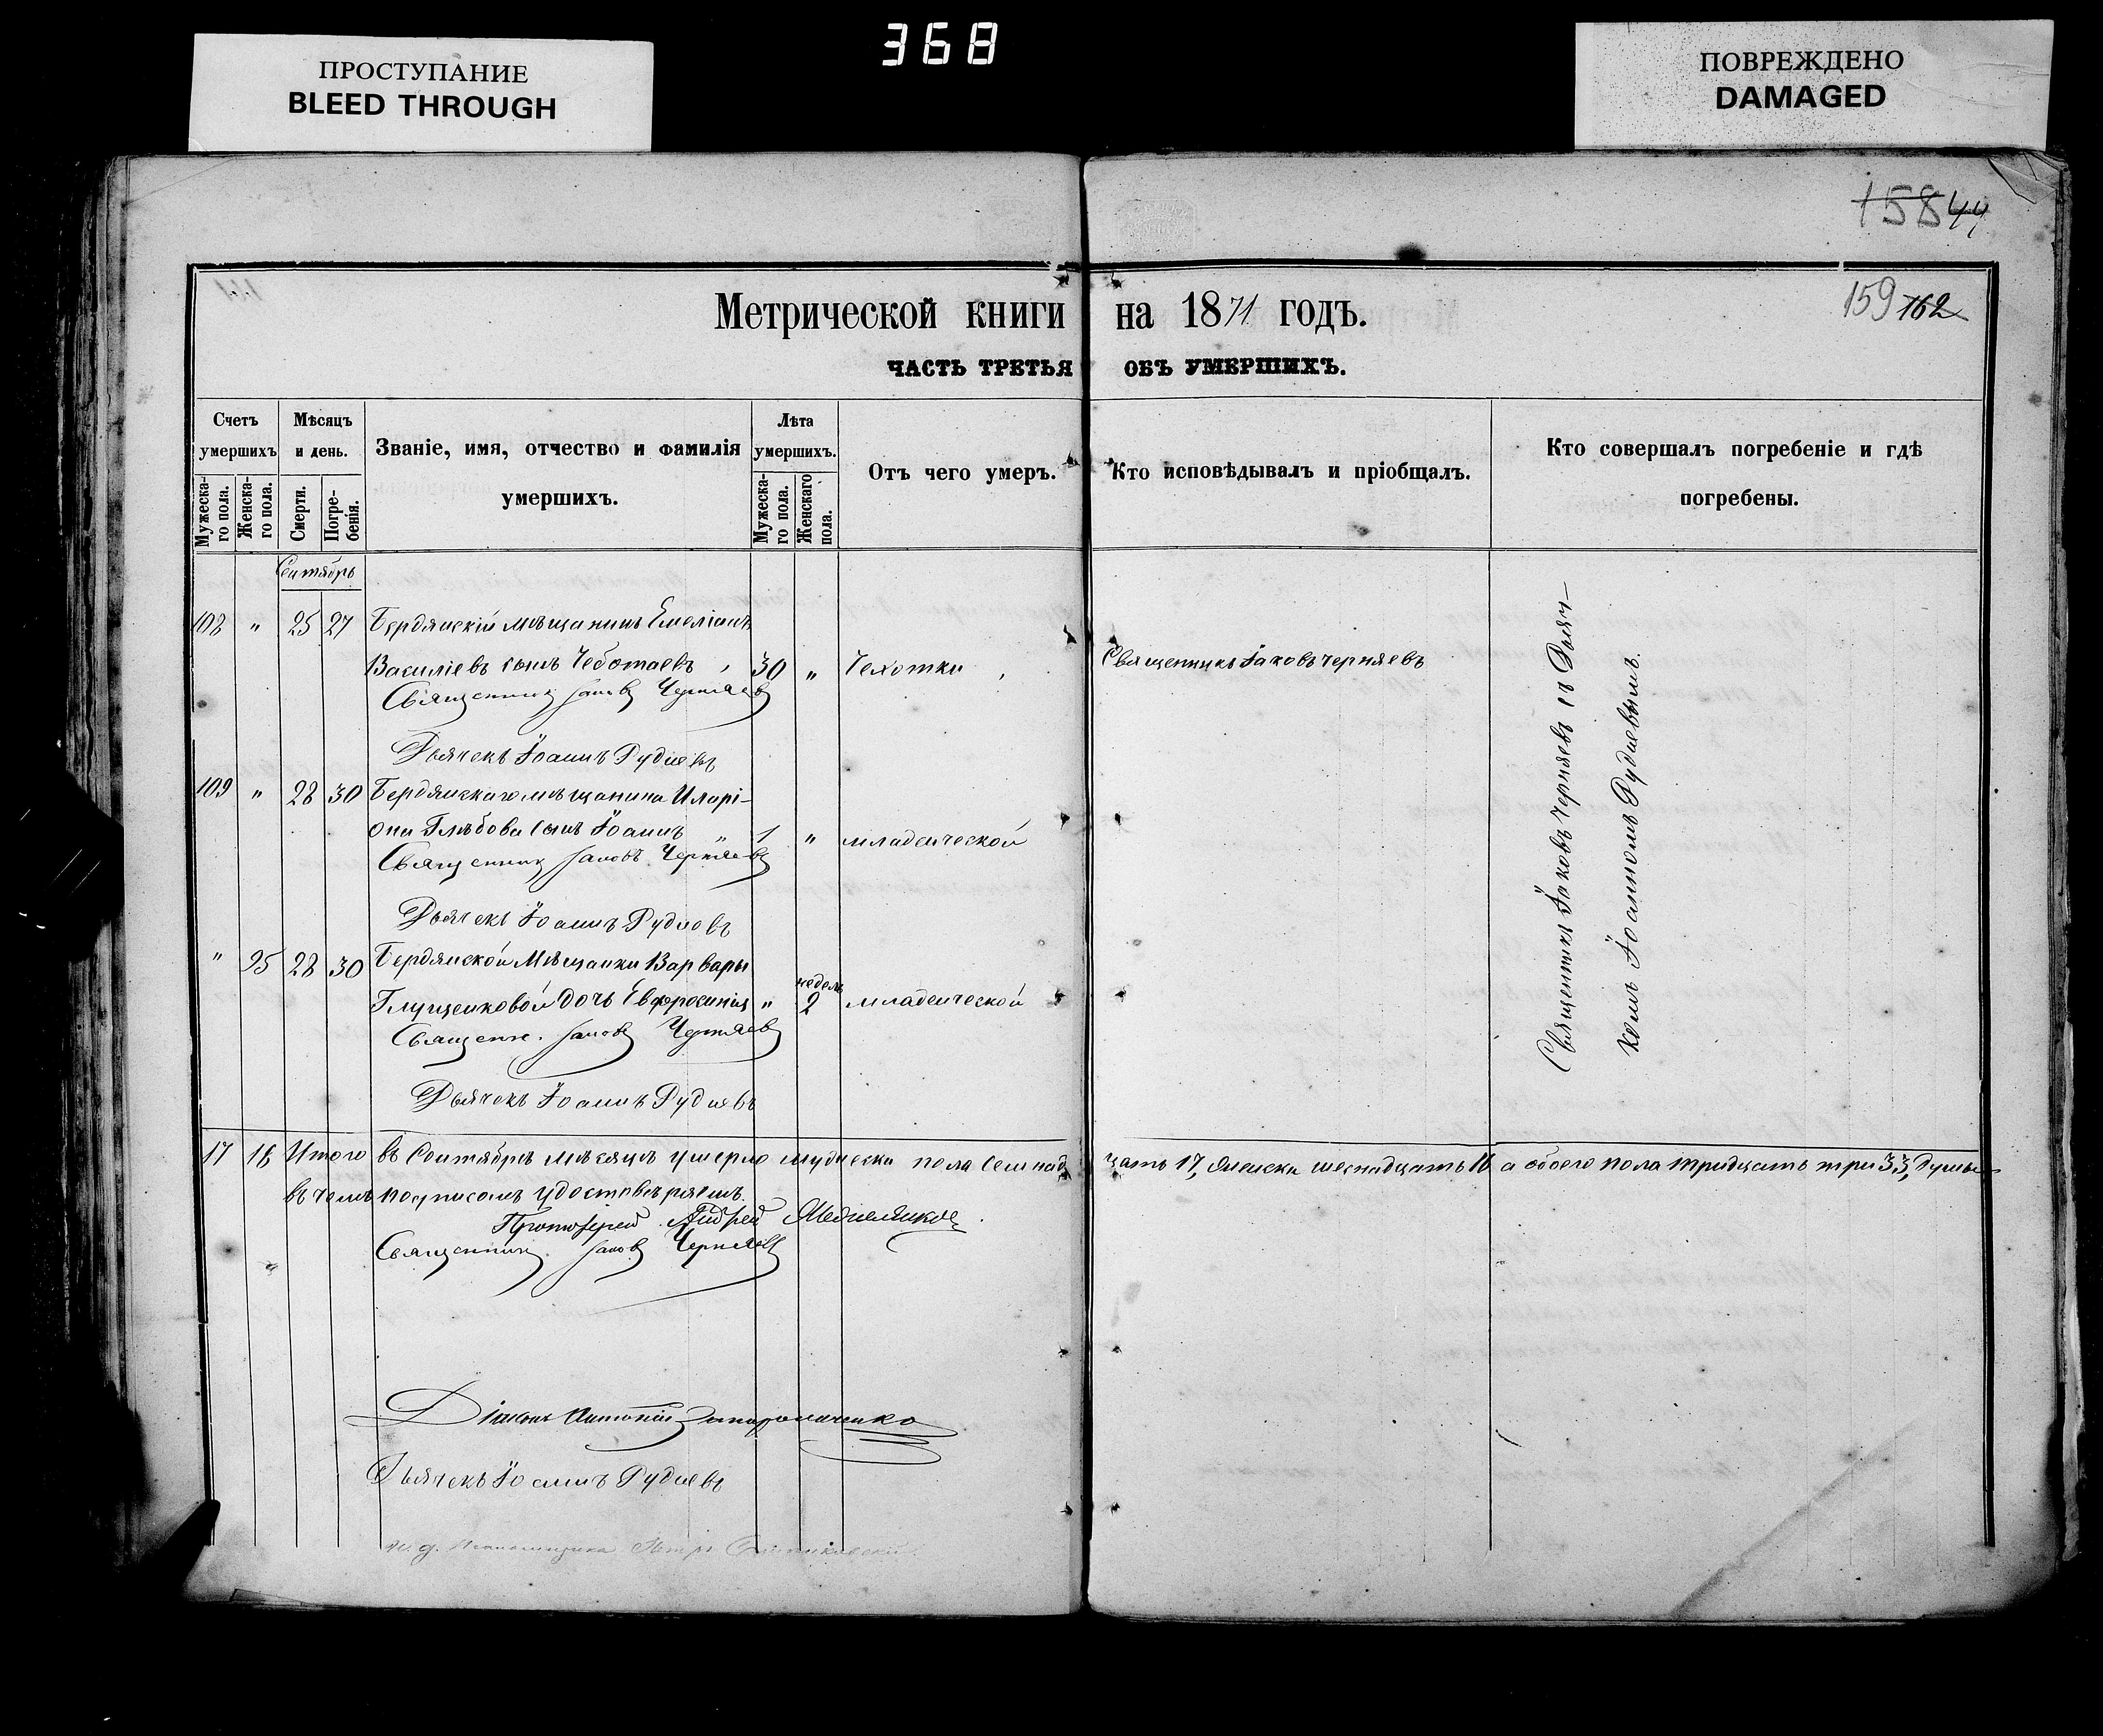 368
ПРОСТУПАНИЕ
BLEED THROUGH
ПОВРЕЖДЕНО
DAMAGED
158 44
159 162
Метрической книги на 1871 годъ.
ЧАСТЬ ТРЕТЬЯ ОБЪ УМЕРШИХЪ.
Счетъ умершихъ
Мужеска-го пола.
Женска-го пола.
Мѣсяцъ и день.
Смерти.
Погре-бенія.
Званіе, имя, отчество и фамилія умершихъ.
Лѣта умершихъ.
Мужеска-го пола.
Женскаго пола.
Отъ чего умеръ.
Кто исповѣдывалъ и пріобщалъ.
Кто совершалъ погребеніе и гдѣ погребены.
Сентябрь
108 " 25 27 Бердянскій мѣщанинъ Емеліанъ
Василіевъ сынъ Чеботаевъ, 30 " Чехотки, Священникъ Іаковъ Черняевъ
Священникъ Іаковъ Черняевъ
Дьячекъ Іоаннъ Руднєвъ
109 " 28 30 Бердянскаго мѣщанина Иларі-
она Глѣбова сынъ Іоаннъ " 1 " младенческой
Священникъ Іаковъ Черняевъ
Дьячекъ Іоаннъ Рудневъ
" 95 28 30 Бердянской Мѣщанки Варвары
Глущенковой дочь Евфросинія " недель 2 младенческой
Священ. Іаковъ Черняевъ
Дьячекъ Іоаннъ Рудневъ
Священникъ Іаковъ Черняевъ съ Дьяч-
комъ Іоанномъ Рудневымъ.
17 16 Итого въ Сентябрѣ мѣсяцѣ умерло мужеска пола семнад цать 17, женска шеснадцать 16 а обоего пола тридцать три 33, душъ
въ чемъ подписомъ удостовѣряемъ.
Протоіерей Андрей
Священникъ Іаковъ Черняевъ
Діаконъ Антоній
Дьячекъ Іоаннъ Рудневъ
и. д. Псаломщика Петръ